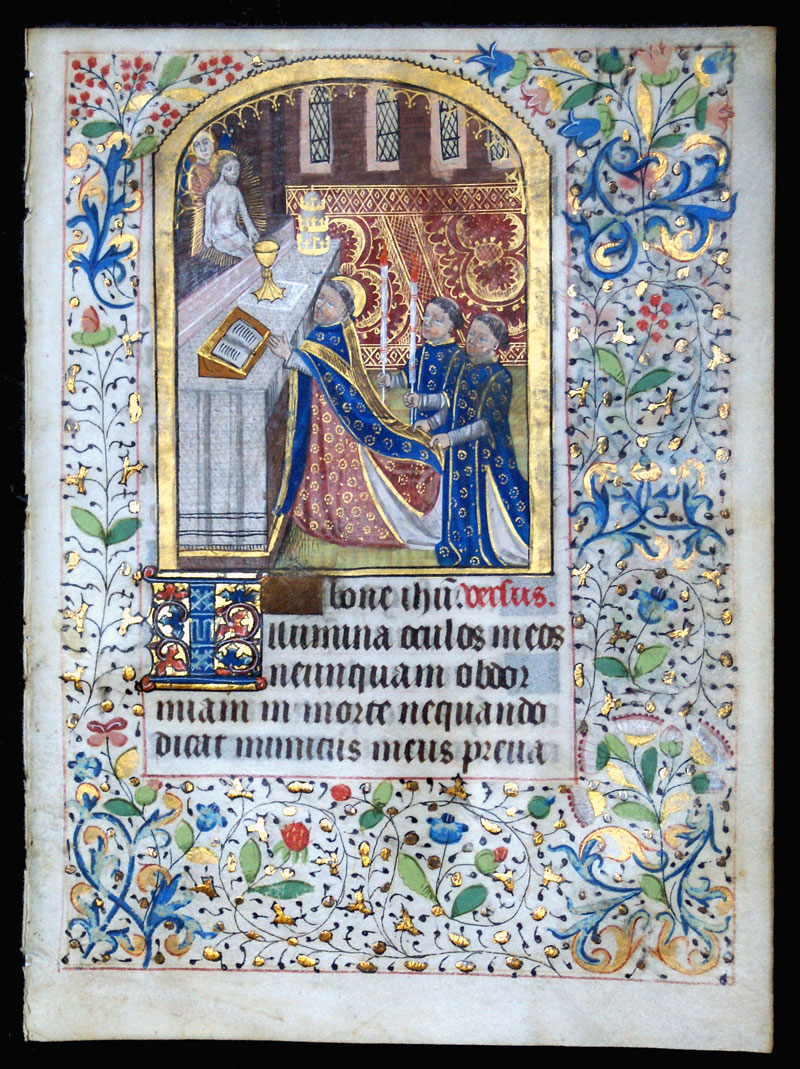 bone ihū. versus.
Illumina oculos meos
neunquam obdor
miam in morte nequando
dicat inimicus meus preua